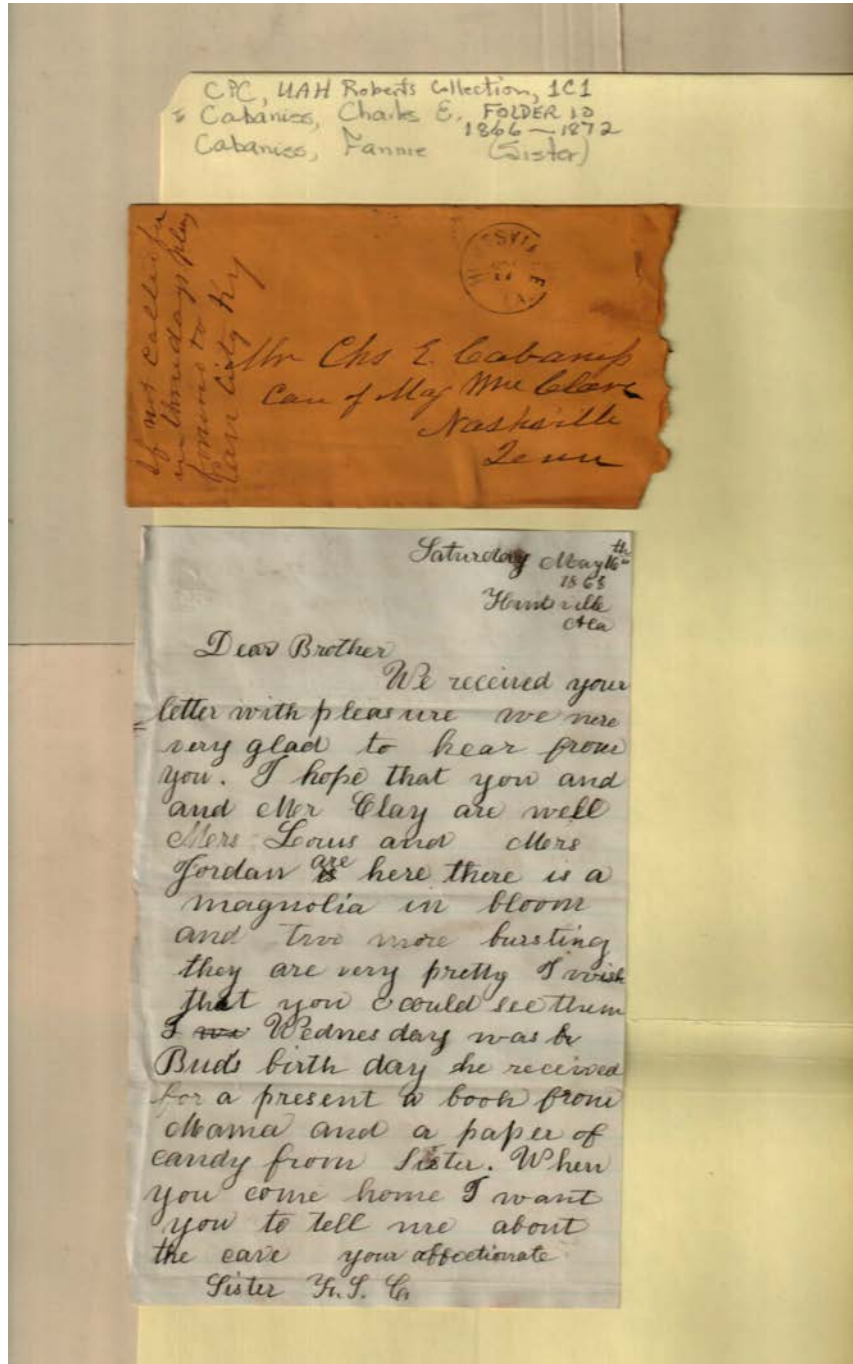 CPC, UAH Roberts Collection, 1C1
Cabaniss, Charles E. FOLDER 10
1866 — 1872
Cabaniss, Fannie (Sister)
If not called for
in three days
to
Cave City Ky
Mr Chs E. Cabaniss
Care of Maj Clave
Nashville
Tenn
Saturday May 16th
1868
Huntsville
Ala
Dear Brother
We received your
letter with pleasure we were
very glad to hear from
you. I hope that you and
and Mr Clay are well
Mers and Mers
Jordan are here there is a
magnolia in bloom
and two more bursting
they are very pretty I wish
that you could see them
I Wednesday was
Buds birth day he received
for a present a book from
Mama and a paper of
candy from Sister. When
you come home I want
you to tell me about
the cave your affectionate
Sister F. S. C.